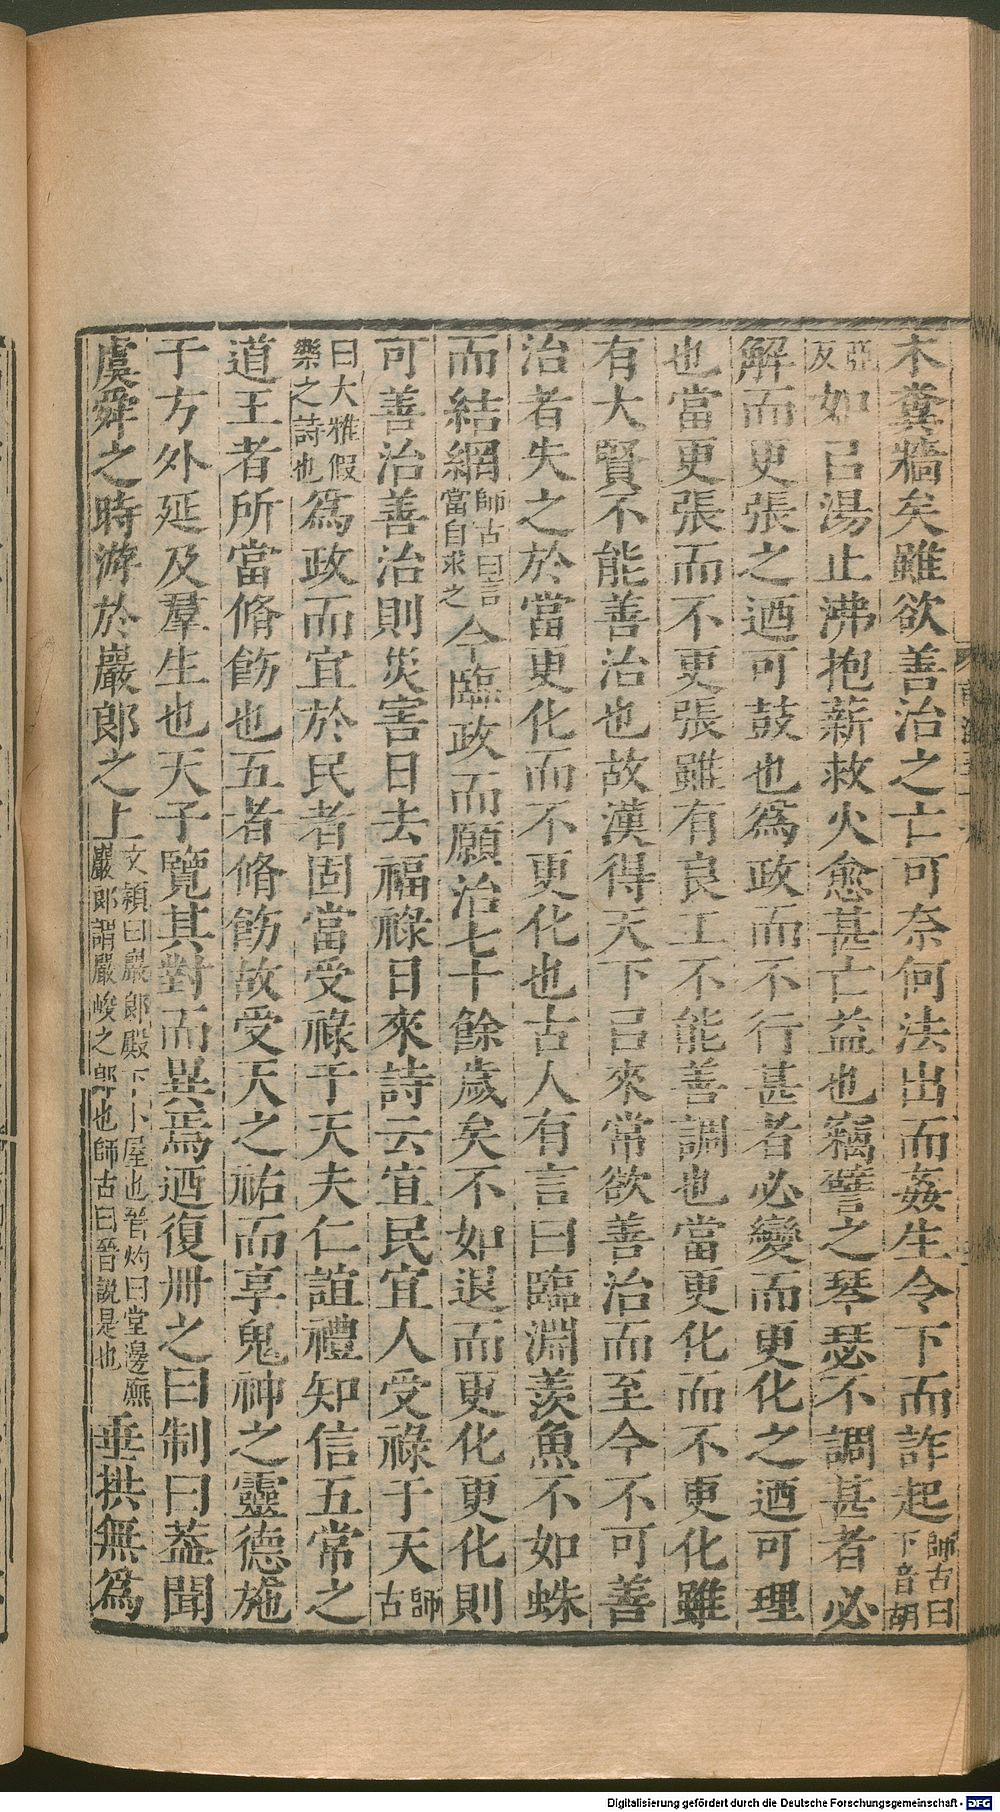 木糞牆矣雖欲善治之亡可奈何法出而姦生令下而詐起師古曰下音胡
亞反如㠯湯止沸抱薪救火愈甚亡益也竊譬之琴瑟不調甚者必
解而更張之迺可鼓也為政而不行甚者必變而更化之迺可理
也當更張而不更張雖有良工不能善調也當更化而不更化雖
有大賢不能善治也故漢得天下㠯來常欲善治而至今不可善
治者失之於當更化而不更化也古人有言曰臨淵羨魚不如蛛
而結網師古曰言當自求之今臨政而願治七十餘歲矣不如退而更化更化則
可善治善治則災害日去福祿日來詩云宜民宜人受祿于天師古
曰大雅假樂之詩也為政而宜於民者固當受祿于天夫仁誼禮知信五常之
道王者所當脩飭也五者脩飭故受天之祐而享鬼神之靈德施
于方外延及羣生也天子覽其對而異焉迺復冊之曰制曰蓋聞
虞舜之時游於巖郎之上文穎曰巖郎殿下小屋也晉灼曰堂邊廡巖郎謂嚴峻之郎也師古曰晉說是也垂拱無為
Digitalisierung gefördert durch die Deutsche Forschungsgemeinschaft - DFG